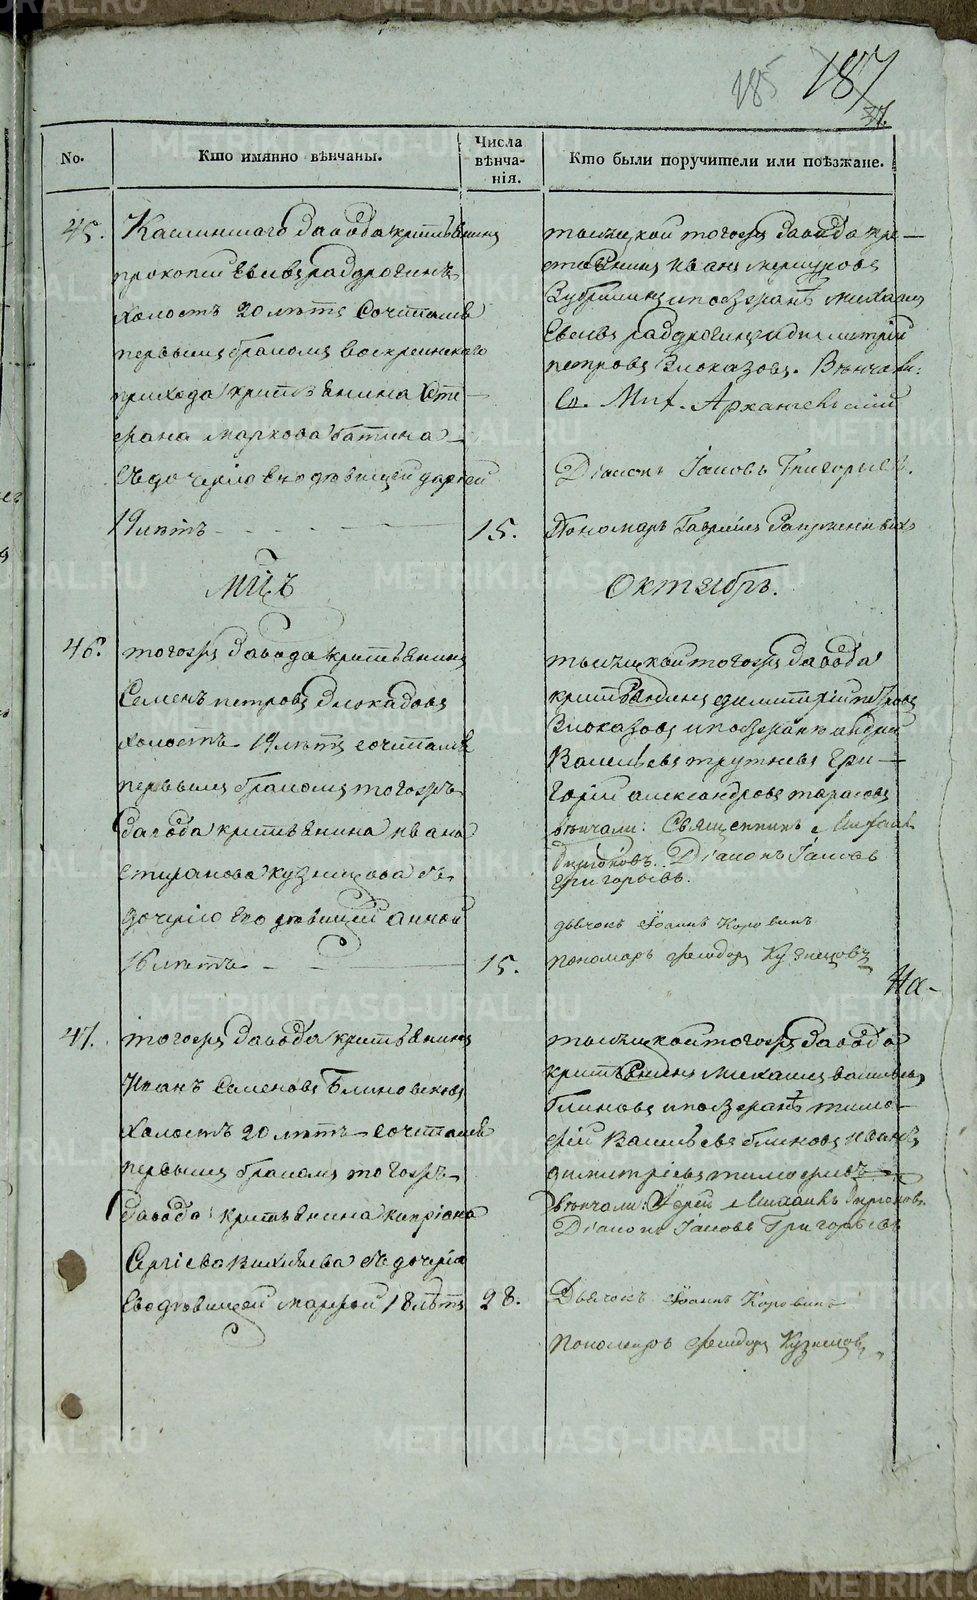 185 187
37.
No.
Кто имянно вѣнчаны.
Числа
вѣнча-
нія.
Кто были поручители или поѣзжане.
45.
Каслинскаго завода крестьянинъ
прокопій Евсевъ
холостъ 20 лѣтъ Сочитался
первымъ бракомъ воскресенскаго
прихода крестьянина Сте-
фана маркова батина
съ дочерію его дѣвицей дарьей
19 лѣтъ
15.
тысяцкой тогожъ завода кре-
стьянинъ иванъ
Зубрилинъ и поѣзжанъ михаилъ
Евсевъ и димитрій
петровъ Злоказовъ. Вѣнчали:
Св. Мих. Архангельскій
Діаконъ Іаковъ Григорьевъ.
Пономарь Гавріилъ
МЦЪ
Октябрь.
46.
тогожъ завода крестьянинъ
Семенъ петровъ Злоказовъ
холостъ 19 лѣтъ сочитался
первымъ бракомъ тогожъ
завода крестьянина ивана
степанова кузнецова съ
дочерію его дѣвицей анной
16 лѣтъ
15.
тысяцкой тогожъ завода
крестьянинъ димитрій петровъ
Злоказовъ и поѣзжанъ андрей
Васильевъ трутневъ Гри-
горій александровъ тарасовъ
вѣнчали: Священникъ Михаилъ
Діаконъ Іаковъ
Григорьевъ.
дьячокъ Іоаннъ Коровинъ
пономарь Феодоръ Кузнецовъ
На-
47.
тогожъ завода крестьянинъ
Иванъ Семеновъ Блиновсковъ
холостъ 20 лѣтъ сочитался
первымъ бракомъ тогожъ
завода крестьянина кипріана
Сергіева съ дочерію
Его дѣвицей марфой 18 лѣтъ
28.
тысяцкой тогожъ завода
крестьянинъ михаилъ васильевъ
блиновъ и поѣзжанъ тимо-
фей Васильевъ блиновъ иванъ
димитріевъ тимофеевъ
вѣнчали: Іерей Михаилъ
Діаконъ Іаковъ Григорьевъ
Дьячокъ Іоаннъ Коровинъ
пономарь Феодоръ Кузнецовъ
METRIKI.GASO-URAL.RU